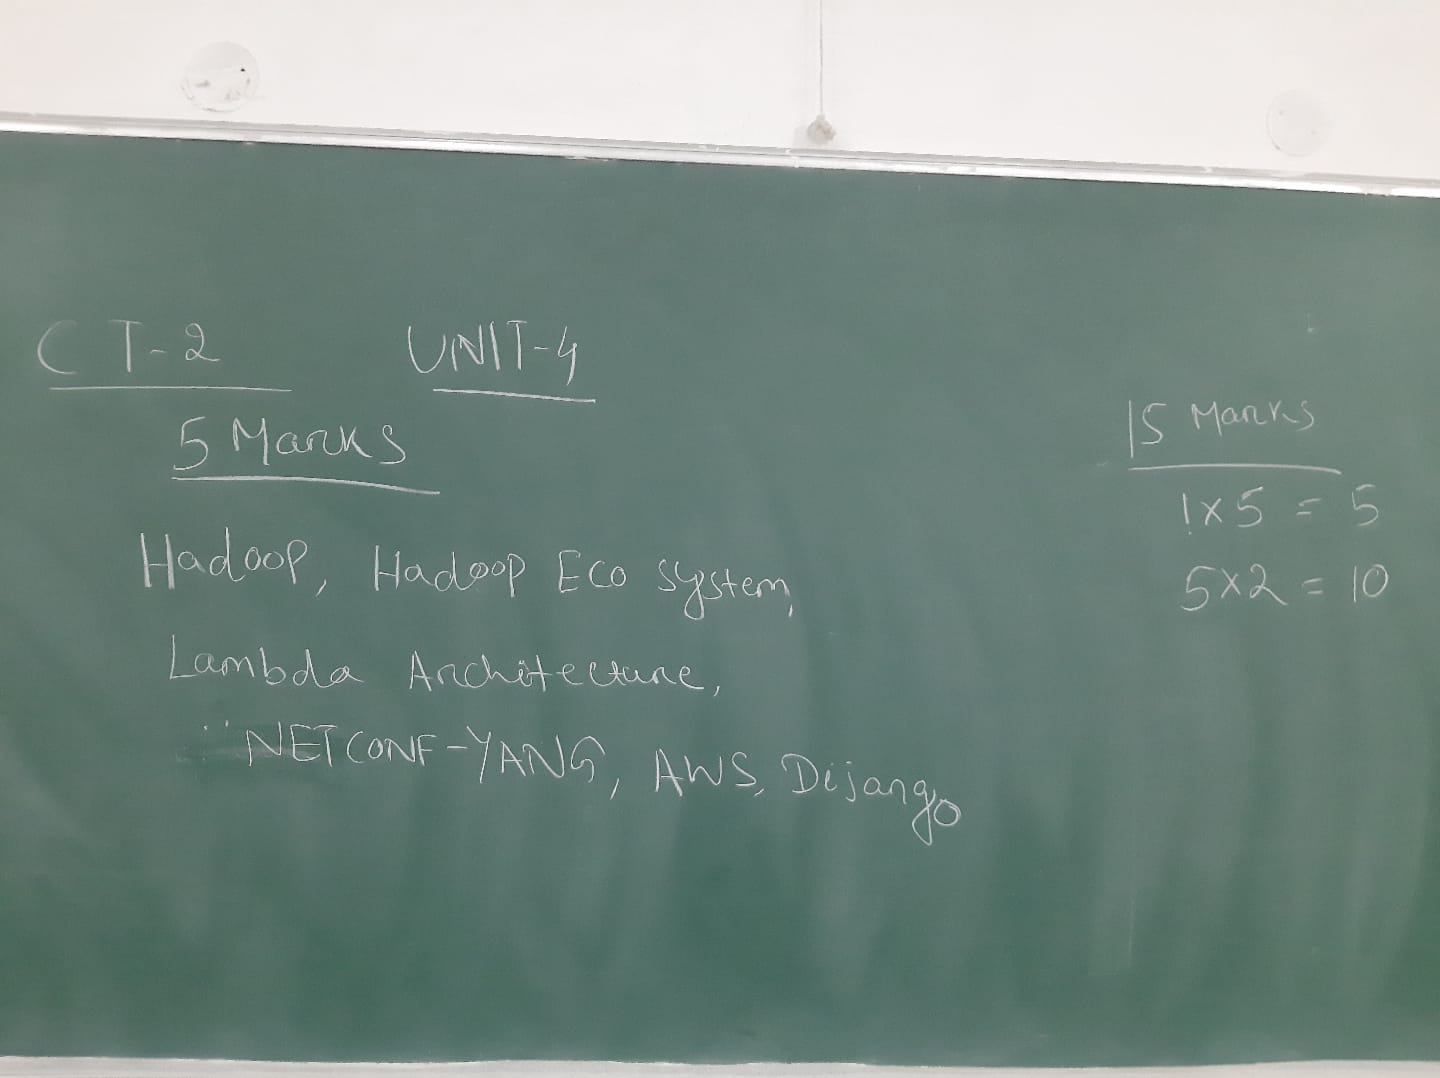 CT-2 UNIT-4
5 Marks
Hadoop, Hadoop Eco system,
Lambda Architecture,
NETCONF-YANG, AWS, Dijango
15 Marks
1x5 = 5
5x2 = 10